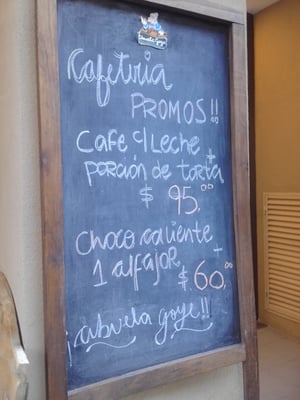 Cafetiria
PROMOS!!
Cafe c/ Leche +
porción de torta
$ 95.00
Choco caliente +
1 alfajor
$ 60.00
¡abuela goye!!